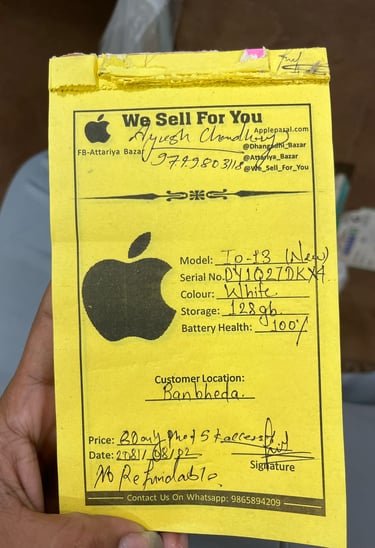 We Sell For You
Ayush Chaudhary
Applepasal.com
FB-Attariya Bazar
@Dhangadhi_Bazar
@Attariya_Bazar
@We_Sell_For_You
Model: To-13 (New)
Serial No. DY1Q27DKX4
Colour: White
Storage: 128gb.
Battery Health: 100%
Customer Location:
Banbheda.
Price:
Date: 2081/08/02
Signature
No Refundable.
Contact Us On Whatsapp: 9865894209